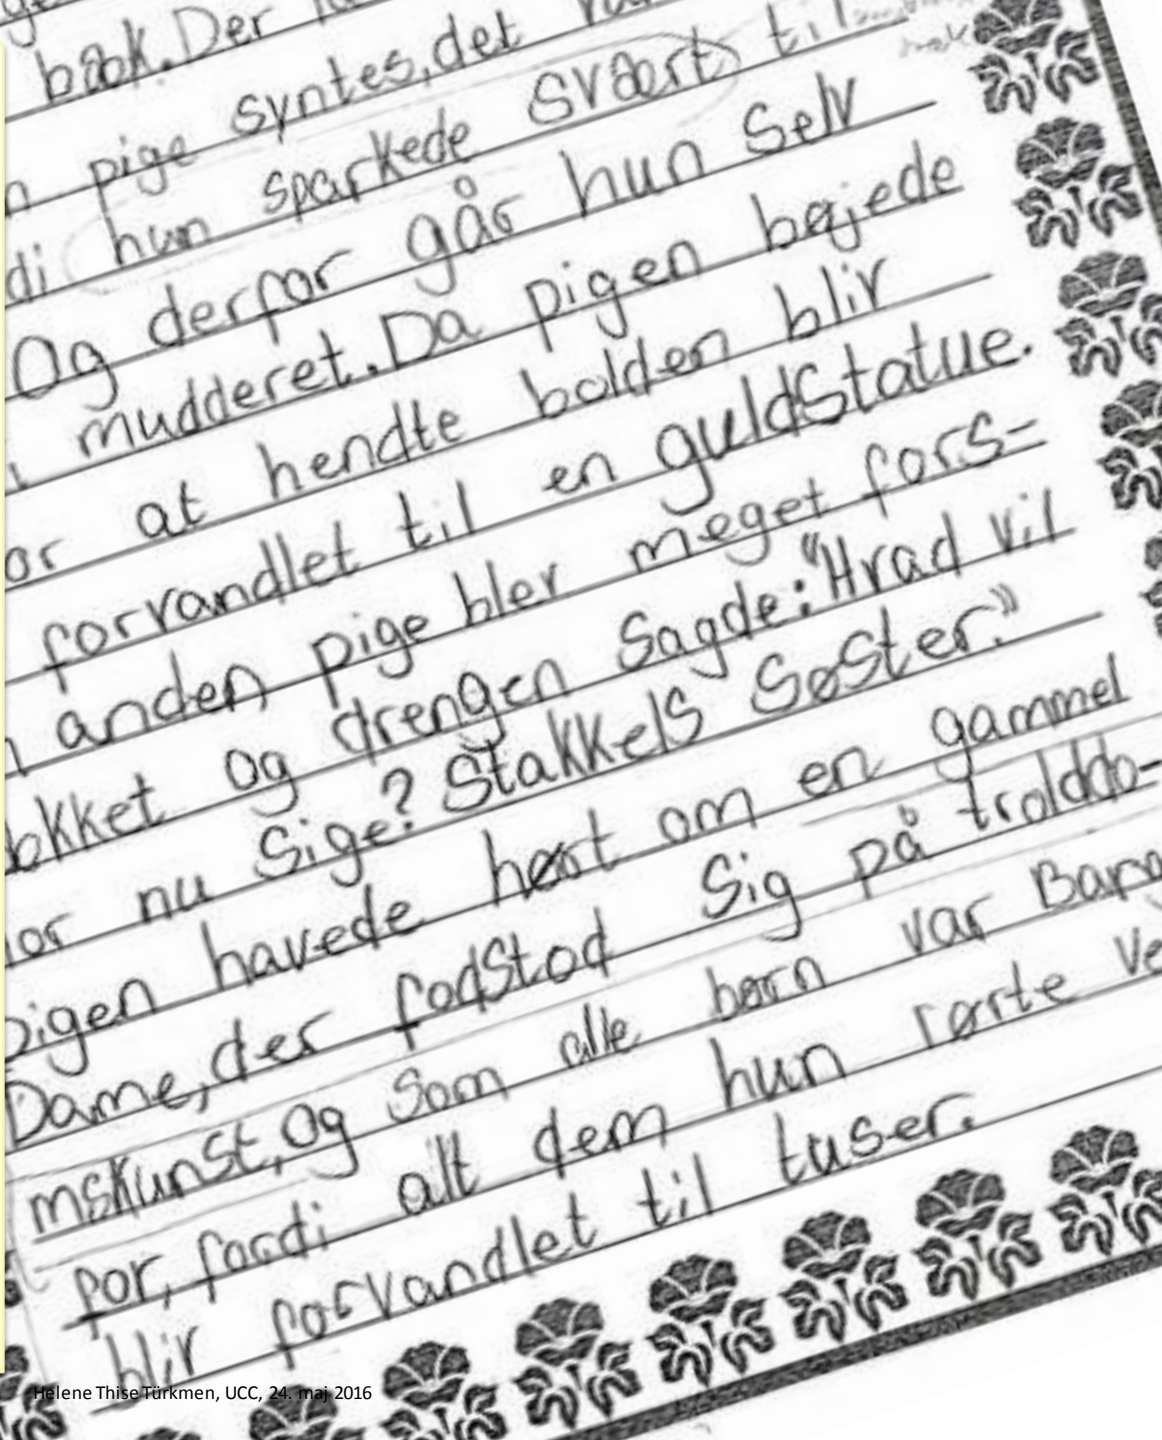 bæk. Der
pige syntes, det
di hun sparkede svært til
Og derfor går hun Selv
mudderet. Da pigen bøjede
or at hendte bolden blir
forvandlet til en guldStatue.
anden pige bler meget fors=
okket og drengen Sagde: "Hvad vil
or nu Sige? StakkelS SøSter."
pigen havede hørt om en gammel
Dame, der fodStod Sig på trolddo-
mskunst, Og Som alle børn var Bang
for, fordi alt dem hun rørte ve
blir forvandlet til tuser.
Helene Thise Türkmen, UCC, 24. maj 2016